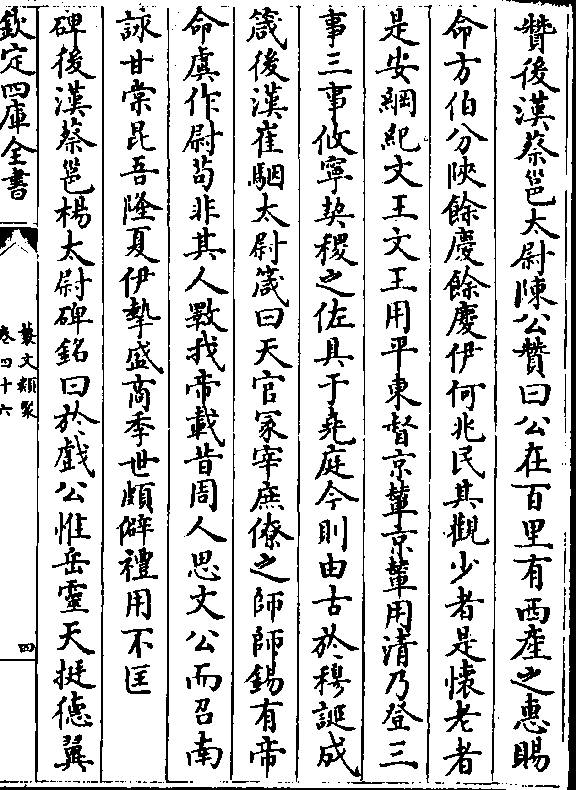 贊後漢蔡邕太尉陳公贊曰公在百里有西產之惠賜
命方伯分陝餘慶餘慶伊何兆民其觀少者是懷老者
是安綱紀文王文王用平東督京輦京輦用清乃登三
事三事攸寧契稷之佐具于堯庭今則由古於穆誕成
箴後漢崔駰太尉箴曰天官冢宰庶僚之師師錫有帝
命虞作尉苟非其人斁我帝載昔周人思文公而召南
詠甘棠昆吾隆夏伊摯盛商季世頗僻禮用不匡
碑後漢蔡邕楊太尉碑銘曰於戲公惟岳靈天挺德翼
欽定四庫全書
藝文類聚
卷四十六
四